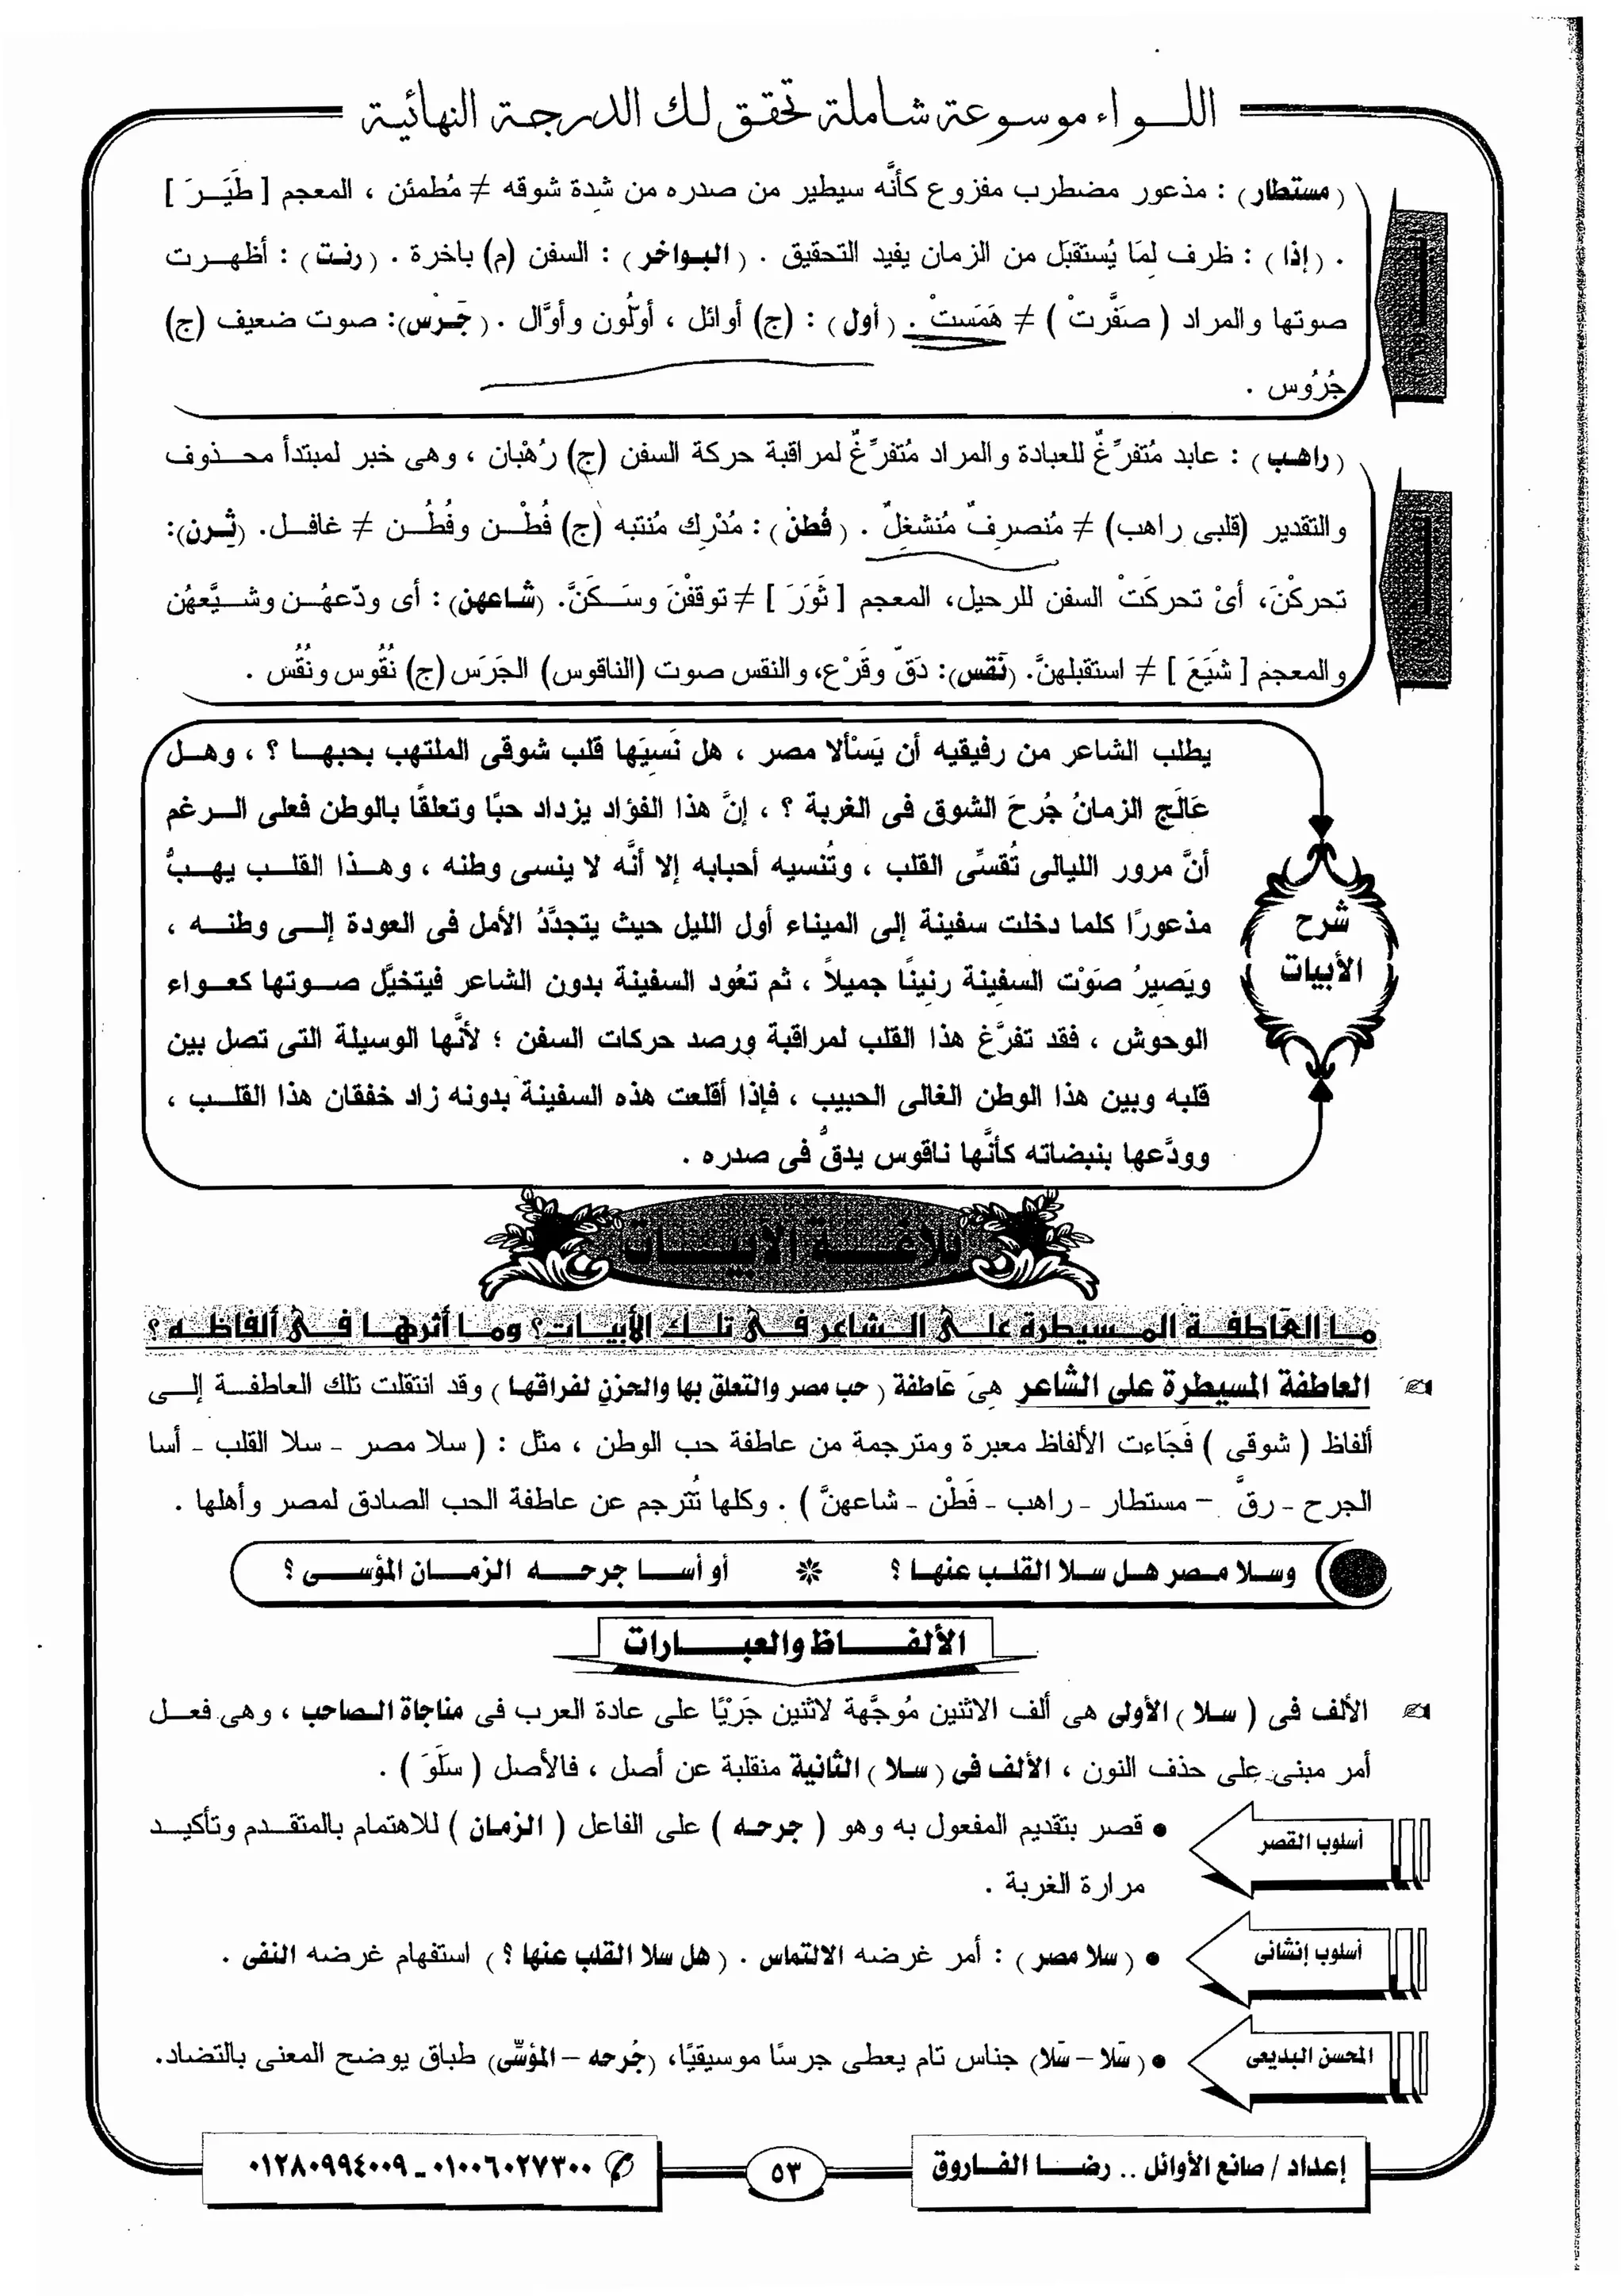 اللواء موسوعة شاملة تحقق لك الدرجة النهائية
(مستطار) : مذعور مضطرب مفزوع كأنَّه سيطير من صدره من شِدة شوقه ≠ مُطمئن ، المعجم [ طَيَرَ ]
. (إذا) : ظرف لِمَا يُستقبَل من الزمان يفيد التحقيق . (البواخر) : السفن (م) باخرة . (رنت) : أظهرت
صوتها والمراد ( صَفَّرتْ ) ≠ هَمَستْ . (أول) : (ج) أوائل ، أوَلُون وأوَّال . (جَرْس): صوت ضعيف (ج)
جُرُوس .
(راهب) : عابد مُتفرِّغٌ للعبادة والمراد مُتفرِّغٌ لمراقبة حركة السفن (ج) رُهْبَان ، وهى خبر لمبتدأ محذوف
والتقدير (قلبى راهب) ≠ مُنصرِفٌ مُنشغِلٌ . (فَطنْ) : مُدْرِك مُنتبه (ج) فُطْن وفُطُن ≠ غافل. (ثرن):
تحركْنَ، أىْ تحركَتْ السفن للرحيل، المعجم [ ثَوَرَ ] ≠ توقفْنَ وسَكَنَّ. (شاعهن) : أى ودّعهُن وشيَّعهُن
والمعجم [ شَيَعَ ] ≠ استقبلهنَّ. (نَقْس): دَقّ وقَرْع، والنقس صوت (الناقوس) الجَرَس (ج) نُقُوس ونُقُس .
شرح
الأبيات
يطلب الشاعر من رفيقيه أن يَسْألا مصر ، هل نَسِيَها قلب شوقى الملتهب بحبها ؟ ، وهل
عَالَج الزمانُ جُرحَ الشوق فى الغربة ؟ ، إنَّ هذا الفؤاد يزداد حبًا وتعلقًا بالوطن فعلى الرغم
أنَّ مرور الليالى تُقسِّى القلب ، وتُنسيه أحبابه إلا أنَّه لا ينسى وطنه ، وهذا القلب يهبُّ
مذعورًا كلما دخلت سفينة إلى الميناء أول الليل حيث يتجدَّدُ الأمل فى العودة إلى وطنه ،
ويَصِيرُ صَوْت السفينة رنينًا جميلاً ، ثم تعُود السفينة بدون الشاعر فيتخيَّل صوتها كعواء
الوحوش ، فقد تفرَّغ هذا القلب لمراقبة ورصد حركات السفن ؛ لأنَّها الوسيلة التى تصل بين
قلبه وبين هذا الوطن الغالى الحبيب ، فإذا أقلعت هذه السفينة بدونه زاد خفقان هذا القلب ،
وودَّعها بنبضاته كأنَّها ناقوس يدقُّ فى صدره .
بلاغة الأبيات
ما العاطفة المسيطرة على الشاعر فى تلك الأبيات؟ وما أثرها فى ألفاظه ؟
العاطفة المسيطرة على الشاعر هىَ عَاطفة (حب مصر والتعلق بها والحزن لفراقها) وقد انتقلت تلك العاطفة إلى
ألفاظ ( شوقى ) فجَاءت الألفاظ معبرة ومترجمة من عاطفة حب الوطن ، مثل : ( سلا مصر - سلا القلب - أسا
الجرح - رقَّ - مستطار - راهب - فَطْن - شاعهنَّ ) . وكلها تُترجم عن عاطفة الحب الصادق لمصر وأهلها .
وسلا مصر هل سلا القلب عنها ؟ ❈ أو أسا جرحه الزمان المؤسى ؟
الألفاظ والعبارات
الألف فى ( سلا ) الأولى هى ألف الاثنين مُوجَّهة لاثنين جَريًا على عادة العرب فى مناجاة الصاحب ، وهى فعل
أمر مبنى على حذف النون ، الألف فى (سلا) الثانية منقلبة عن أصل ، فالأصل ( سلَوَ ) .
أسلوب القصر
• قصر بتقديم المفعول به وهو ( جرحه ) على الفاعل ( الزمان ) للاهتمام بالمتقدم وتأكيد
مرارة الغربة .
أسلوب إنشائى
• (سلا مصر) : أمر غرضه الالتماس . (هل سلا القلب عنها ؟) استفهام غرضه النفى .
المحسن البديعى
• (سَلا - سَلا) جناس تام يعطى جرسًا موسيقيًا، (جُرحه - المؤسِّى) طباق يوضح المعنى بالتضاد.
إعداد / صانع الأوائل .. رضا الفاروق
٥٣
٠١٠٠٦٠٢٧٣٠٠ - ٠١٢٨٠٩٩٤٠٠٩